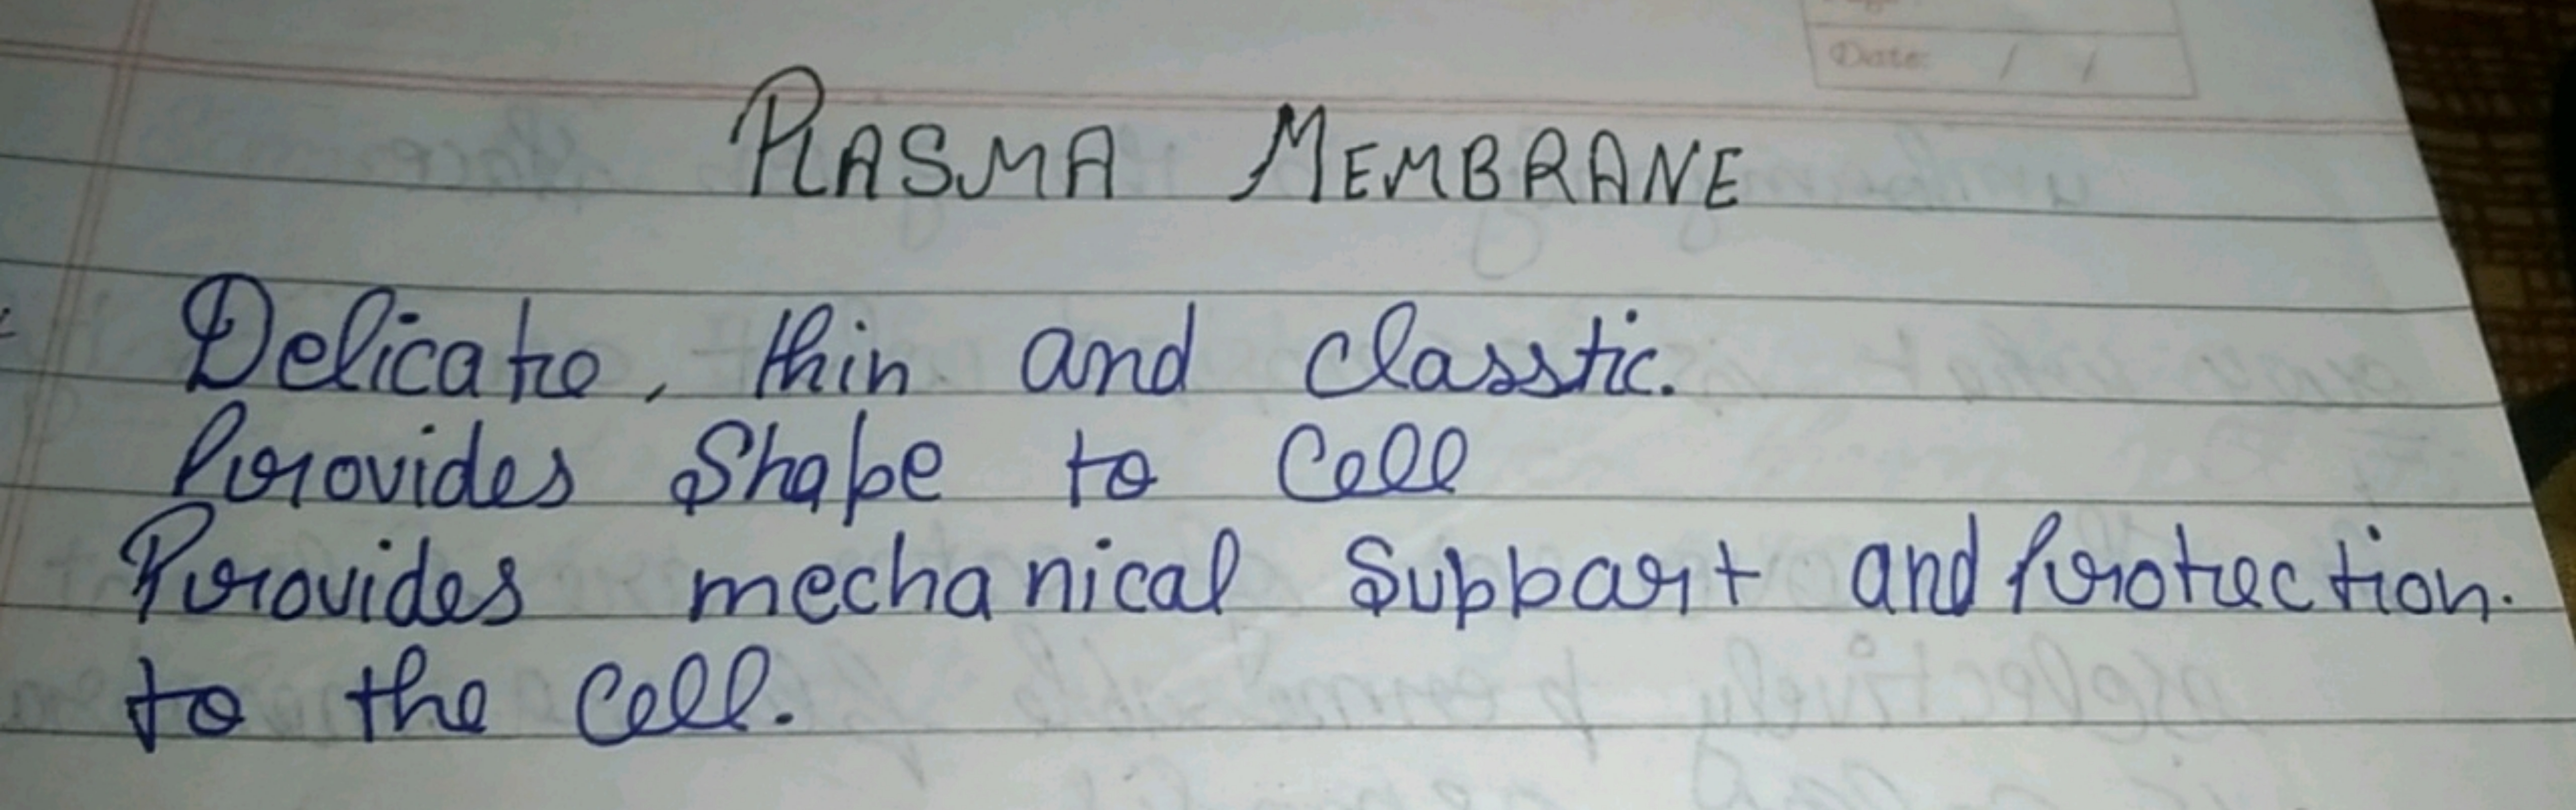 Date: / /
PLASMA MEMBRANE
Delicate, thin and classtic.
Provides Shape to Cell
Provides mechanical Suppart and Protection.
to the Cell.